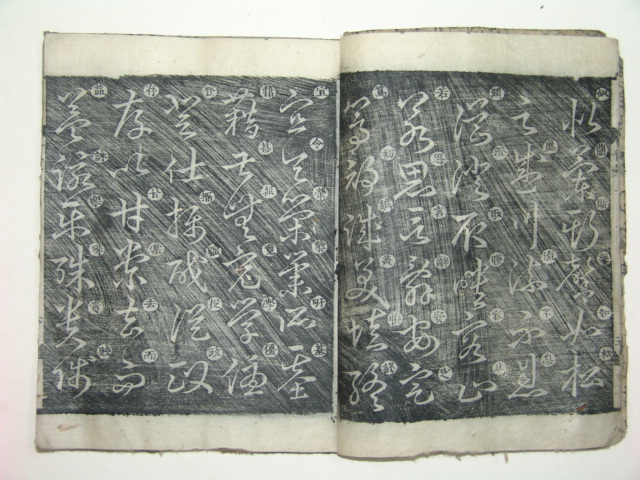 似蘭斯馨如松
之盛川流不息
淵澄取映容止
若思言辭安定
篤初誠美慎終
宜令榮業所基
籍甚無竟學優
登仕攝職從政
存以甘棠去而
益詠樂殊貴賤